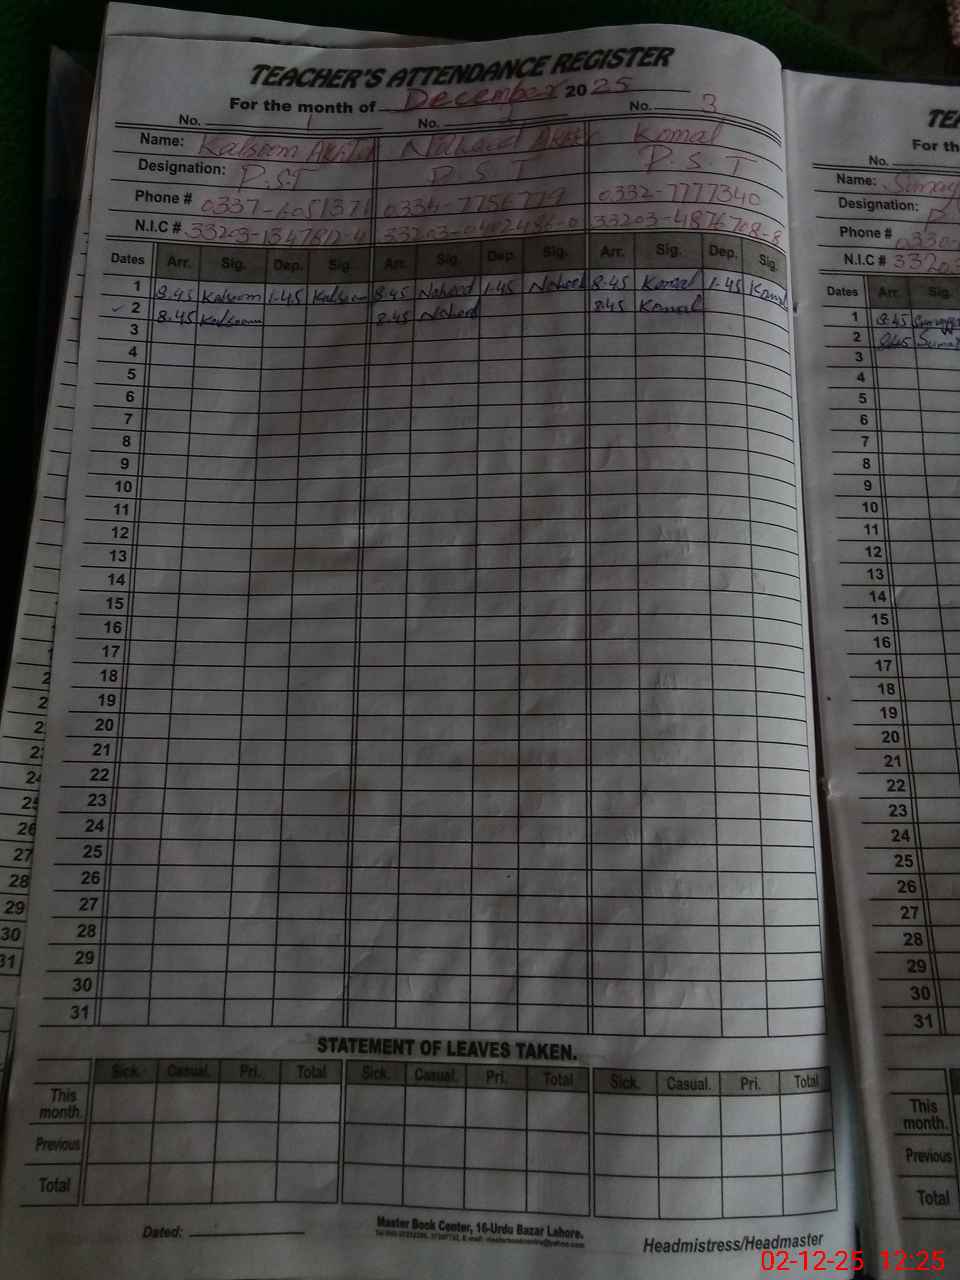 TEACHER'S ATTENDANCE REGISTER
For the month of December 2025
No. 1 No. 2 No. 3
Name: Kalsoom Akhtar Naheed Akhtar Komal
Designation: P.S.T P.S.T P.S.T
Phone # 0337-6051371 0334-7756779 0332-7777340
N.I.C # 33203-1347812-4 33203-0402486-0 33203-4876708-8
Dates Arr. Sig. Dep. Sig. Arr. Sig. Dep. Sig. Arr. Sig. Dep. Sig.
1 8.45 Kalsoom 1.45 Kalsoom 8.45 Naheed 1.45 Naheed 8.45 Komal 1.45 Komal
2 8.45 Kalsoom 8.45 Naheed 8.45 Komal
3
4
5
6
7
8
9
10
11
12
13
14
15
16
17
18
19
20
21
22
23
24
25
26
27
28
29
30
31
STATEMENT OF LEAVES TAKEN.
Sick. Casual. Pri. Total Sick. Casual. Pri. Total Sick. Casual. Pri. Total
This month.
Previous
Total
Dated:
Master Book Center, 16-Urdu Bazar Lahore.
Headmistress/Headmaster
TE
For th
No.
Name:
Designation:
Phone #
N.I.C #
Dates Arr. Sig.
1 8.45
2 8.45
3
4
5
6
7
8
9
10
11
12
13
14
15
16
17
18
19
20
21
22
23
24
25
26
27
28
29
30
31
This month.
Previous
Total
02-12-25 12:25